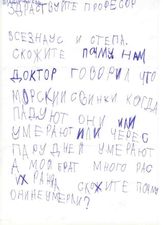 ЗДРАСТВУЙТЕ ПРОФЕСОР
ВСЕЗНАУС И СТЕПА.
СКОЖИТЕ ПОЧМУ НАМ
ДОКТОР ГОВОРИЛ ЧТО
МОРСКИИ СВИНКИ КОГДА
ПАДУЮТ ОНИ ИЛИ
УМЕРАЮТ ИЛИ ЧЕРЕС
ПАРУ ДНЕЙ УМЕРАЮТ
А МОЙ БРАТ МНОГО РАС
ИХ СКОЖИТЕ ПОЧМУ
ОНИ НЕ УМЕРЛИ?